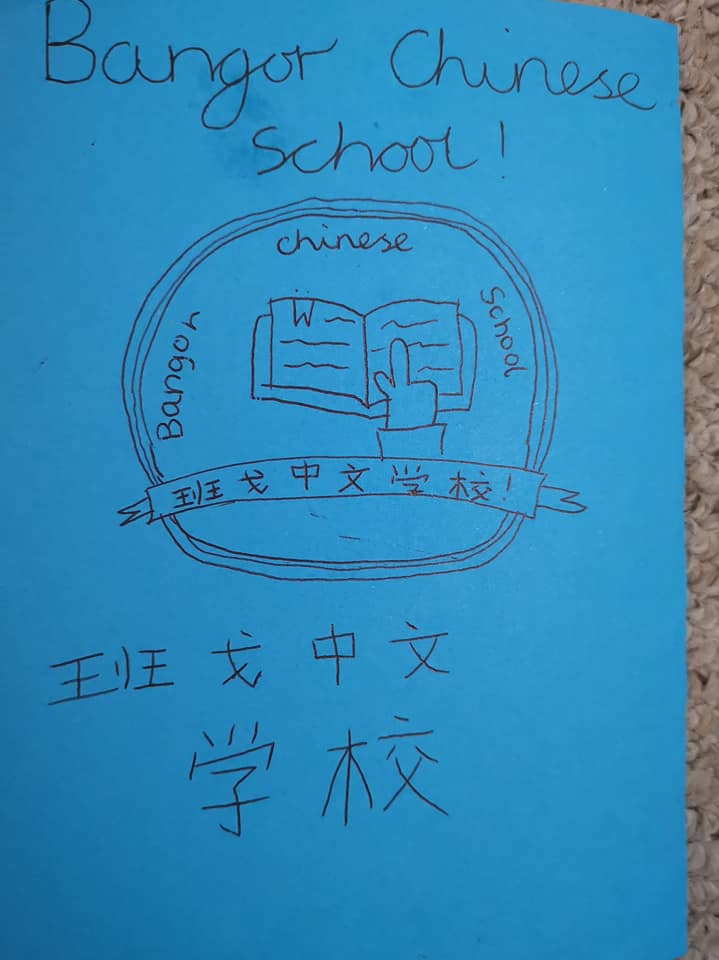 Bangor Chinese
School!
Bangor chinese School
班戈中文学校!
班戈中文
学校